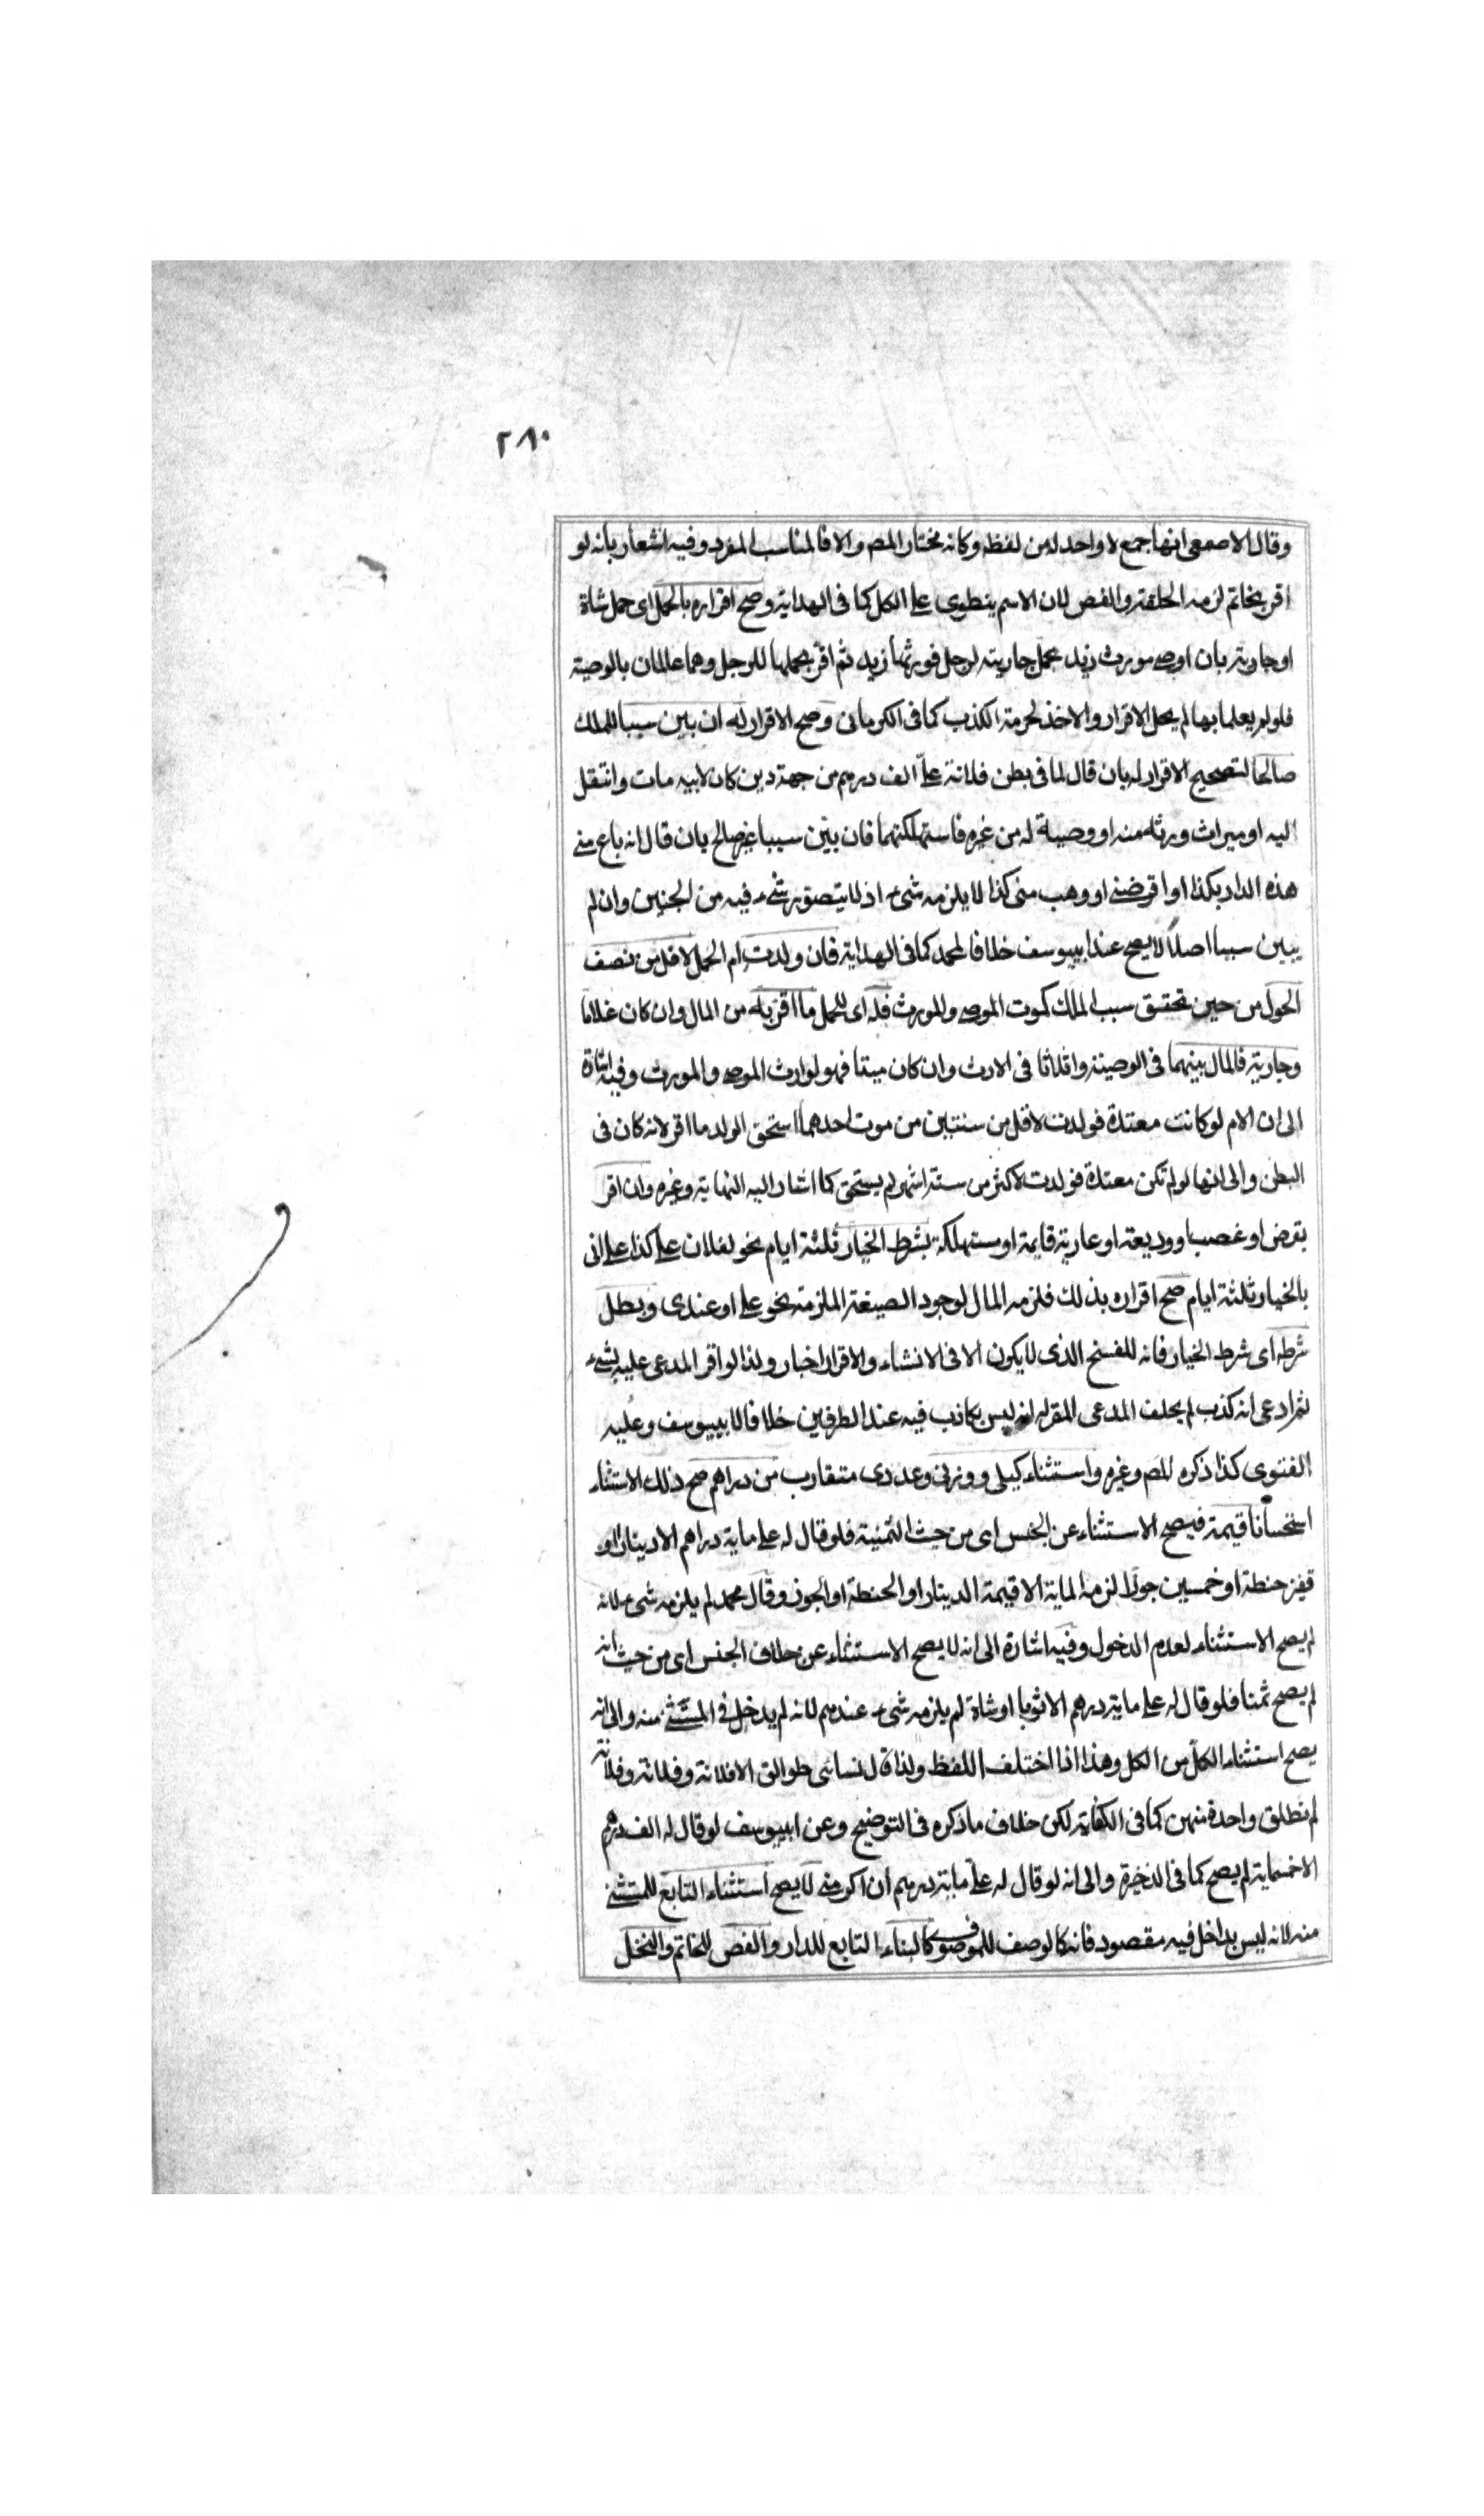 ٢٨٠
وقال الاصمعى انها جمع لا واحد له من لفظه وكانه مختار المص والا فالمناسب المفرد وفيه اشعار بانه لو
اقر بخاتم لزمه الحلقة والفص لان الاسم ينطوى على الكل كما فى الهداية وصح اقراره بالحمل اى حمل شاة
او جارية بان اوصى مورث زيد بحمل جاريته لرجل فورثها زيد ثم اقر بحملها للرجل وهما عالمان بالوصية
فلو لم يعلما بها لم يحل الاقرار والاخذ لحرمة الكذب كما فى الكرمانى وصح الاقرار له ان بين سببا للملك
صالحا لتصحيح الاقرار له بان قال لما فى بطن فلانة علىّ الف درهم من جهة دين كان لابيه مات وانتقل
اليه او ميراث ورثه منه او وصية له من غيره فاستهلكتهما فان بيّن سببا غير صالح بان قال انه باع منى
هذه الدار بكذا او اقرضنى او وهب منى كذا لا يلزمه شىء اذ لا يتصور شىء فيه من الجنين وان لم
يبين سببا اصلاً لا يصح عند ابييوسف خلافا لمحمد كما فى الهداية فان ولدت ام الحمل لاقل من نصف
الحول من حين تحقق سبب الملك كموت الموصى والمورث فله اى للحمل ما اقر به من المال وان كان غلاما
وجارية فالمال بينهما فى الوصية واثلاثا فى الارث وان كان ميتا فهو لوارث الموصى والمورث وفيه اشارة
الى ان الام لو كانت معتدة فولدت لاقل من سنتين من موت احدهما استحق الولد ما اقر لانه كان فى
البطن والى انها لو لم تكن معتدة فولدت لاكثر من ستة اشهر لم يستحق كما اشار اليه النهاية وغيره وان اقر
بقرض او غصب او وديعة او عارية قايمة او مستهلكة بشرط الخيار ثلثة ايام نحو لفلان على كذا على انى
بالخيار ثلثة ايام صح اقراره بذلك فلزمه المال لوجود الصيغة الملزمة نحو على او عندى وبطل
شرطه اى شرط الخيار فانه للفسخ الذى لا يكون الا فى الانشاء والاقرار اخبار ولذا لو اقر المدعى عليه بشىء
ثم ادعى انه كذب لم يحلف المدعى المقر له انه ليس بكاذب فيه عند الطرفين خلافا لابييوسف وعليه
الفتوى كذا ذكره المص وغيره واستثناء كيلى ووزنى وعددى متقارب من دراهم صح ذلك الاستثناء
استحسانا قيمة فيصح الاستثناء عن الجنس اى من حيث الثمنية فلو قال له على ماية دراهم الا دينارا او
قفيز حنطة او خمسين جوزا لزمه الماية الا قيمة الدينار او الحنطة او الجوز وقال محمد لم يلزمه شىء لانه
لم يصح الاستثناء لعدم الدخول وفيه اشارة الى انه لا يصح الاستثناء عن خلاف الجنس اى من حيث انه
لم يصح ثمنا فلو قال له على ماية درهم الا ثوبا او شاة لم يلزمه شىء عندهم لانه لم يدخل فى المستثنى منه والى انه
يصح استثناء الكل من الكل وهذا اذا اختلف اللفظ ولذا قال نسائى طوالق الا فلانة وفلانة وفلانة
لم تطلق واحدة منهن كما فى الكفاية لكن خلاف ما ذكره فى التوضيح وعن ابييوسف لو قال له الف درهم
الا خمسماية لم يصح كما فى الذخيرة والى انه لو قال له علىّ ماية درهم ان لا يصح استثناء التابع للمستثنى
منه لانه ليس بداخل فيه مقصود فانه كالوصف للموصوف كالبناء التابع للدار والفص للخاتم والنخل